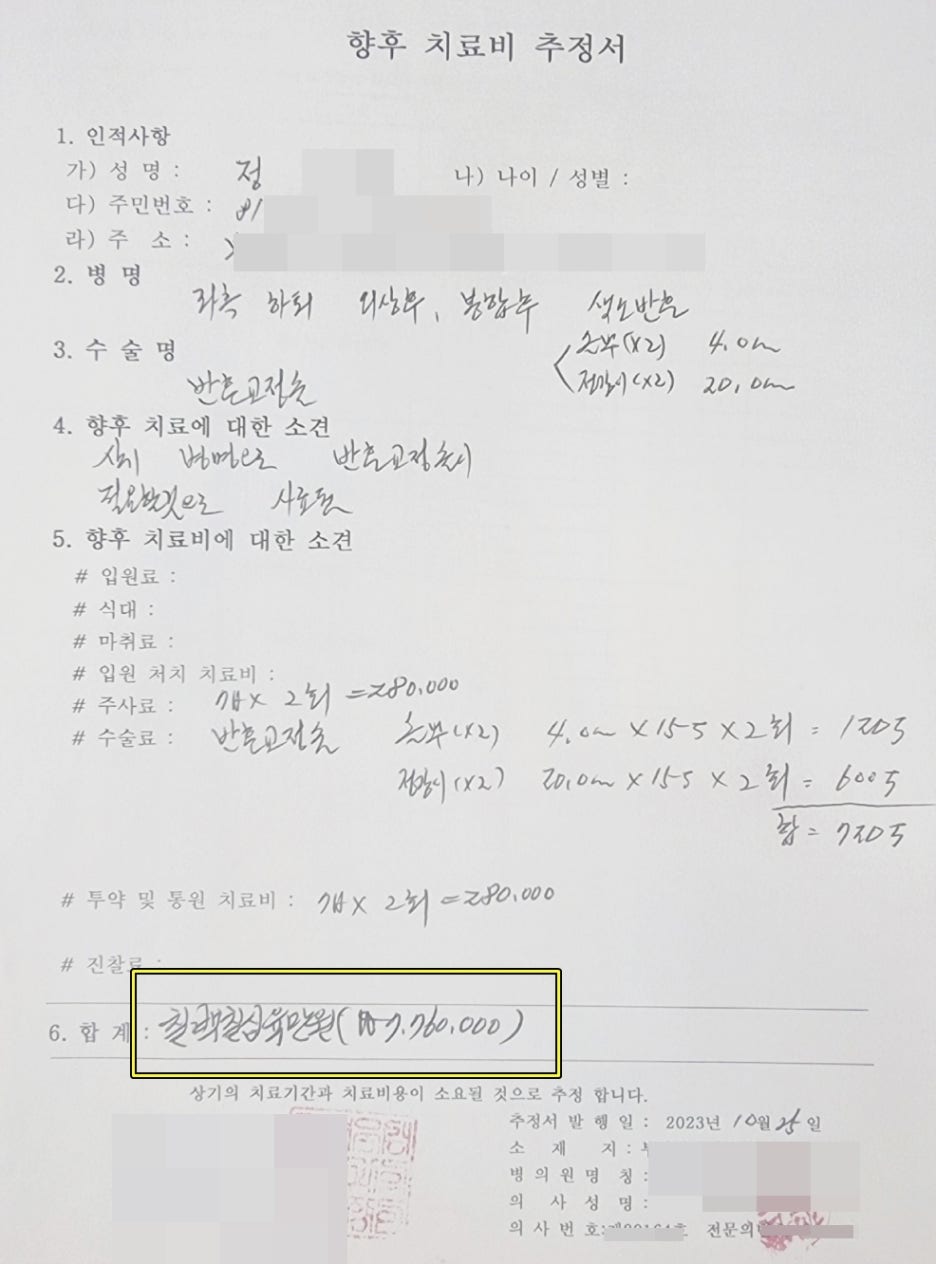 향후 치료비 추정서
1. 인적사항
가) 성 명 : 정 나) 나이 / 성별 :
다) 주민번호 : 81
라) 주 소 :
2. 병 명
좌측 하퇴 외상후, 봉합후 색소반흔
3. 수 술 명 손부(x2) 4.0cm
반흔교정술 정강이(x2) 20.0cm
4. 향후 치료에 대한 소견
상기 병명으로 반흔교정술시
필요한것으로 사료됨
5. 향후 치료비에 대한 소견
# 입원료 :
# 식대 :
# 마취료 :
# 입원 처치 치료비 :
# 주사료 : x 2회 = 280,000
# 수술료 : 반흔교정술 손부(x2) 4.0cm x 15 x 2회 = 120
정강이(x2) 20.0cm x 15 x 2회 = 600
합 = 720
# 투약 및 통원 치료비 : x 2회 = 280,000
# 진찰료 :
6. 합 계 : 칠백칠십육만원(₩7,760,000)
상기의 치료기간과 치료비용이 소요될 것으로 추정 합니다.
추정서 발 행 일 : 2023년 10월 25일
소 재 지 :
병 의 원 명 칭 :
의 사 성 명 :
의 사 번 호: 전문의